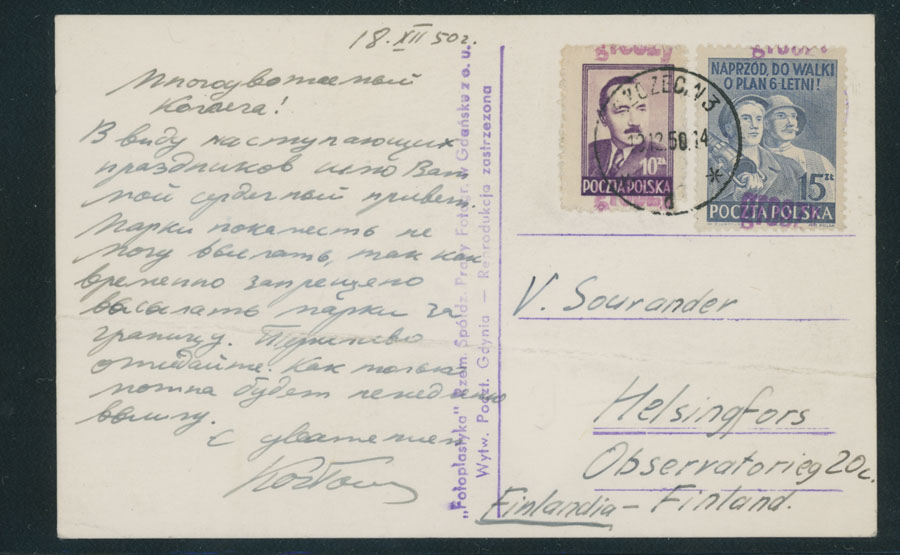 18.XII 50г.
Многоуважаемый
Коллега!
В виду наступающих
праздников шлю Вам
мой сердечный привет.
Марки покаместь не
могу выслать, так как
временно запрещено
высылать марки за
границу. Терпеливо
ожидайте. Как только
можна будет немедленно
вышлю.
С уважением
"Fotoplastyka" Rzem. Spółdz. Pracy Fotogr. w Gdańsku z o. u.
Wytw. Poczt. Gdynia — Reprodukcja zastrzeżona
groszy
10 ZŁ
POCZTA POLSKA
groszy
NAPRZÓD, DO WALKI
O PLAN 6-LETNI!
15 ZŁ
POCZTA POLSKA
groszy
12.50.14
*
d
V. Sourander
Helsingfors
Observatorieg 20c.
Finlandia – Finland.